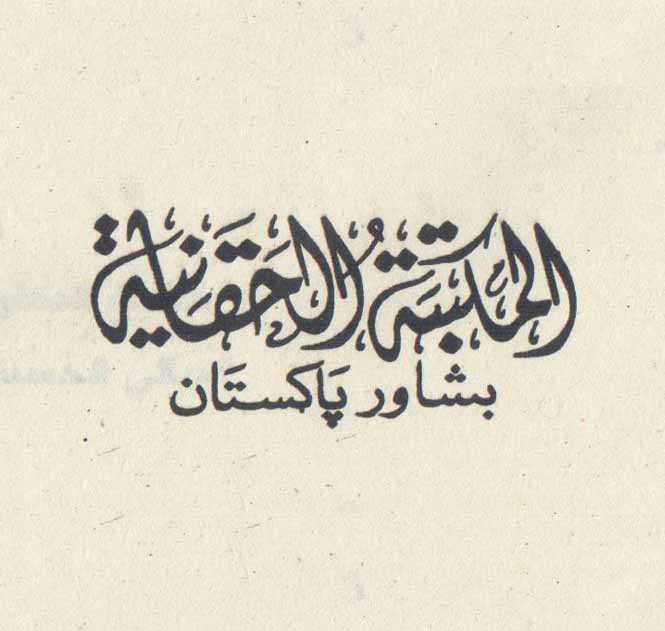 المکتبةُ الحَقَانية
بشاور پَاکستَان